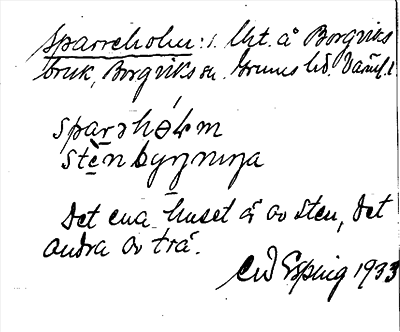 Sparreholm: s. Lht. å Borgviks
bruk, Borgviks sn. Grums hd. Värml. l.
sparəhólm
stènbyggnıŋa
Det ena huset är av sten, det
andra av trä.
Ewd Espling 1933